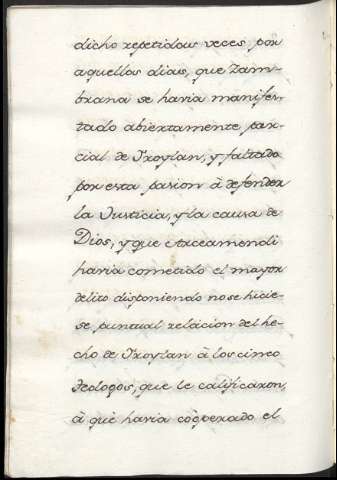 dicho repetidas veces, por
aquellos dias, que Zam-
brana se havia manifes-
tado abiertamente par-
cial de Froylan, y faltado
por esta pasion à defender
la Justicia, y la causa de
Dios; y que Arceamendi
havia cometido el mayor
delito disponiendo no se hicie-
se puntual relacion del he-
cho de Froylan à los cinco
Teologos, que le calificaron,
à què havia coòperado el